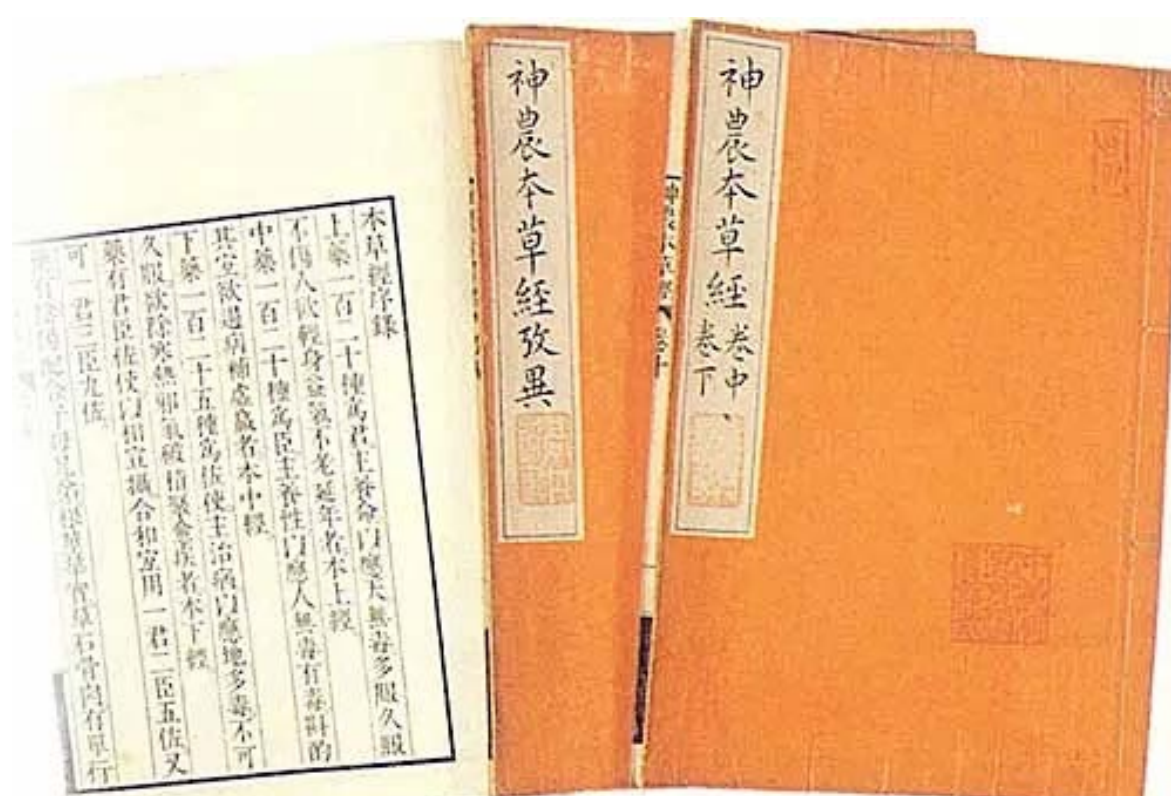 神農本草經
卷中、
卷下
神農本草經攷異
本草經序錄
上藥一百二十種為君主養命以應天無毒多服久服
不傷人欲輕身益氣不老延年者本上經
中藥一百二十種為臣主養性以應人無毒有毒斟酌
其宜欲遏病補虛羸者本中經
下藥一百二十五種為佐使主治病以應地多毒不可
久服欲除寒熱邪氣破積聚愈疾者本下經
藥有君臣佐使以相宣攝合和宜用一君二臣五佐又
可一君三臣九佐
草石骨肉有單行